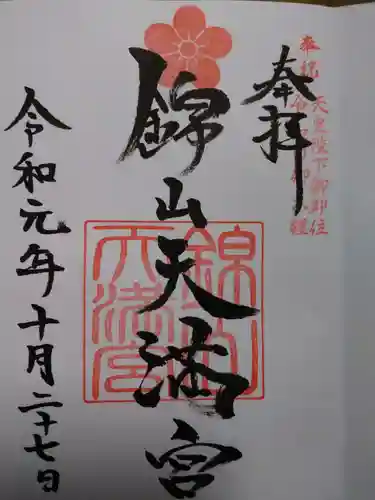 奉祝 天皇陛下御即位
奉拝
錦山天満宮
令和元年十月二十七日